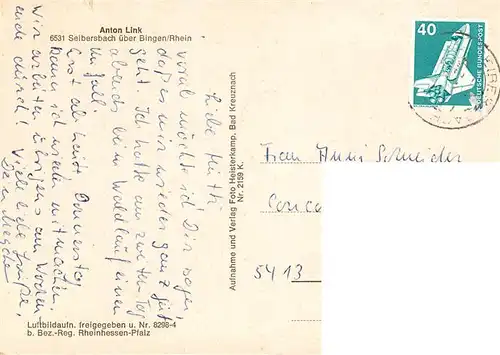 Anton Link
6531 Seibersbach über Bingen/Rhein
Liebe Mutti
vorab möchte ich Dir sagen,
daß es mir wieder ganz gut
geht. Ich hatte am zweiten Tag
abends beim Waldlauf einen
Unfall.
Erst ab heute Donnerstag
kann ich wieder mitmachen.
Wir arbeiten übrigens am Wochen-
ende durch! Viele liebe Grüße,
Dein
Luftbildaufn. freigegeben u. Nr. 8298-4
b. Bez.-Reg. Rheinhessen-Pfalz
Aufnahme und Verlag Foto Heisterkamp, Bad Kreuznach
Nr. 2159 K.
40
DEUTSCHE BUNDESPOST
Frau Anni Schneider
Conco
5413